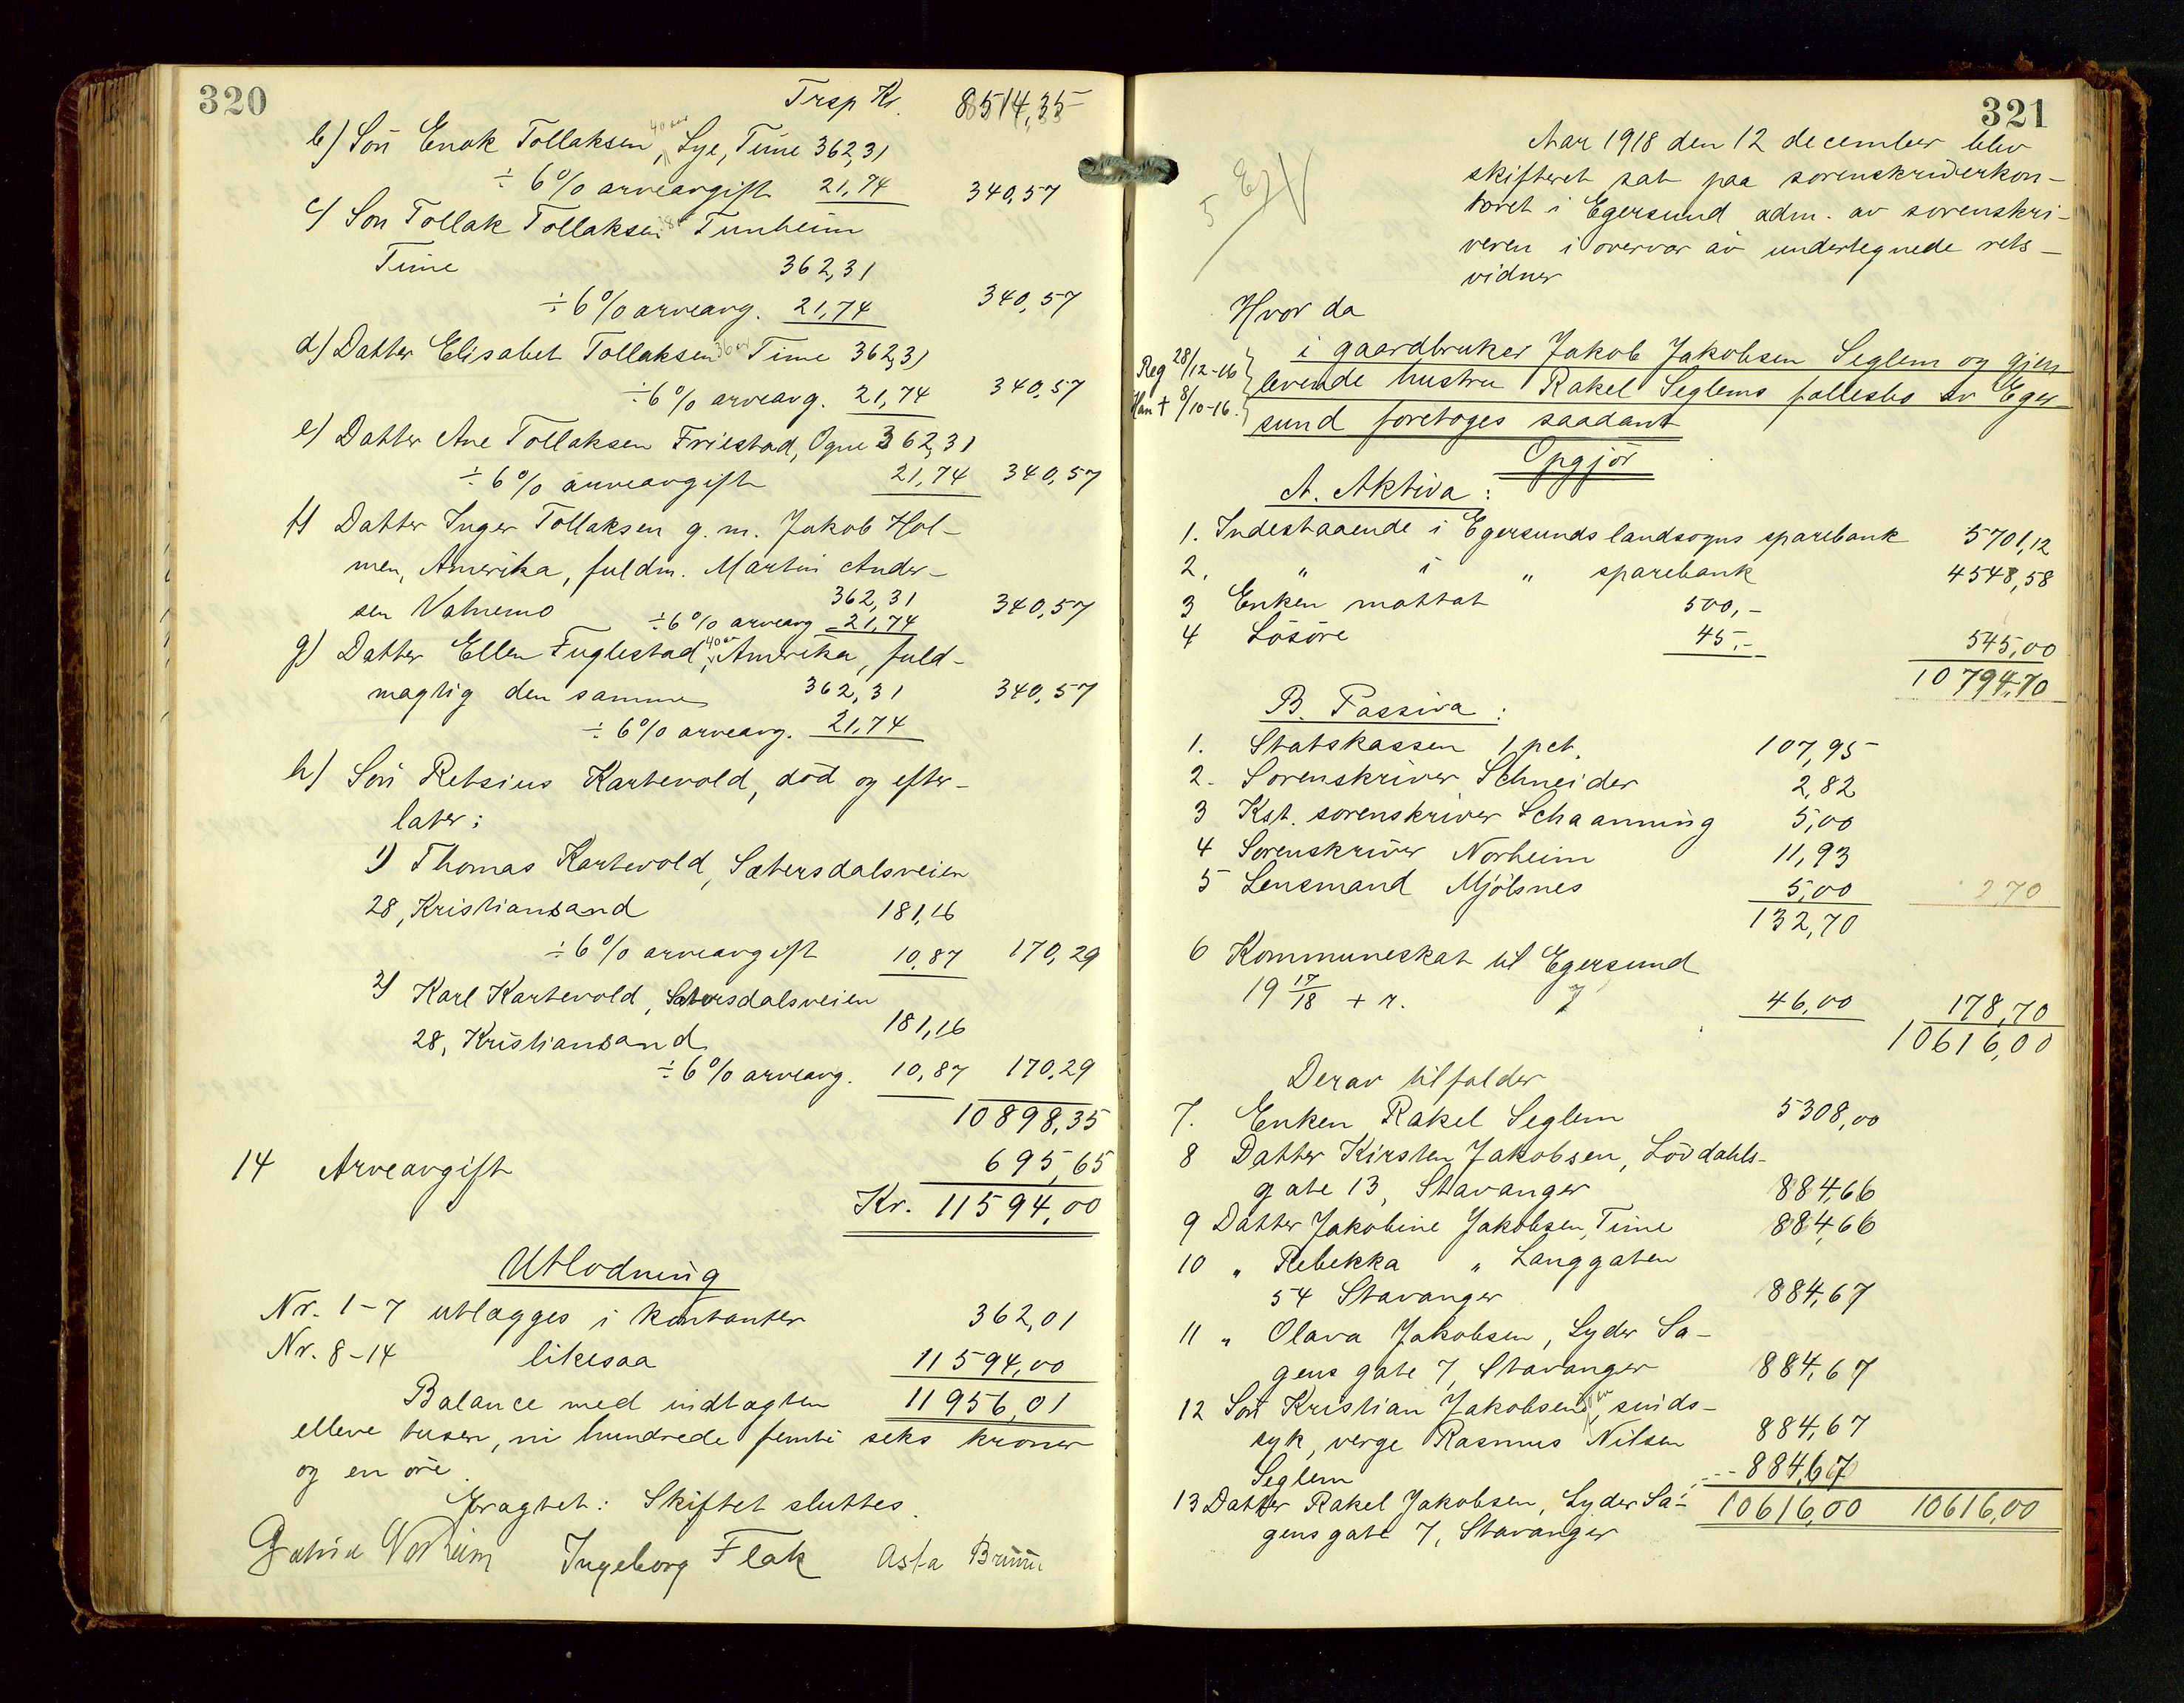 320
Trsp Kr. 8514,35
b) Søn Enok Tollaksen, 40 aar Lye, Time 362,31
÷ 6% arveavgift 21,74 340,57
c) Søn Tollak Tollaksen Tunheim
Time 362,31
÷ 6% arveavg. 21,74 340,57
d) Datter Elisabet Tollaksen 36 aar Time 362,31
÷ 6% arveavg. 21,74 340,57
e) Datter Ane Tollaksen Friestad, Ogne 362,31
÷ 6% arveavgift 21,74 340,57
f) Datter Inger Tollaksen g. m. Jakob Hol-
men, Amerika, fuldm. Martin Ander-
sen Vatnemo 362,31 340,57
÷ 6% arveavg 21,74
g) Datter Ellen Fuglestad, 40 aar Amerika, fuld-
mægtig den samme 362,31 340,57
÷ 6% arveavg. 21,74
h) Søn Retsius Kartevold, død og efter-
later:
1) Thomas Kartevold, Sætersdalsveien
28, Kristiansand 181,16
÷ 6% arveavgift 10,87 170,29
2) Karl Kartevold, Sætersdalsveien
28, Kristiansand 181,16
÷ 6% arveavg. 10,87 170,29
10898,35
14 Arveavgift 695,65
Kr. 11594,00
Utlodning
Nr. 1-7 utlægges i kontanter 362,01
Nr. 8-14 likesaa 11594,00
Balance med indtægten 11956,01
elleve tusen, ni hundrede femti seks kroner
og en øre.
Eragtet: Skiftet sluttes.
Norheim Ingeborg Flak Asta
321
Aar 1918 den 12 december blev
skifteret sat paa sorenskriverkon-
toret i Egersund adm. av sorenskri-
veren i overvær av undertegnede rets-
vidner
Hvor da
Reg 28/12-16
Han + 8/10-16.
i gaardbruker Jakob Jakobsen Seglem og gjen
levende hustru Rakel Seglems fællesbo av Eger
sund foretoges saadant
Opgjør
A. Aktiva:
1. Indestaaende i Egersunds landsogns sparebank 5701,12
2. " i " sparebank 4548,58
3 Enken mottat 500,-
4 Løsøre 45,- 545,00
10794,70
B. Passiva:
1. Statskassen 1 pct. 107,95
2. Sorenskriver Schneider 2,82
3 Kst. sorenskriver Schaanning 5,00
4 Sorenskriver Norheim 11,93
5 Lensmand Mjølsnes 5,00
132,70
6 Kommuneskat til Egersund
19 17/18 + r. 46,00 178,70
10616,00
Derav tilfalder
7. Enken Rakel Seglem 5308,00
8 Datter Kirsten Jakobsen, Løvdahls-
gate 13, Stavanger 884,66
9 Datter Jakobine Jakobsen, Time 884,66
10 " Rebekka " Langgaten
54 Stavanger 884,67
11 " Olava Jakobsen, Lyder Sa-
gens gate 7, Stavanger 884,67
12 Søn Kristian Jakobsen, sinds-
syk, verge Rasmus Nilsen 884,67
Seglem 884,67
13 Datter Rakel Jakobsen, Lyder Sa- 10616,00 10616,00
gens gate 7, Stavanger